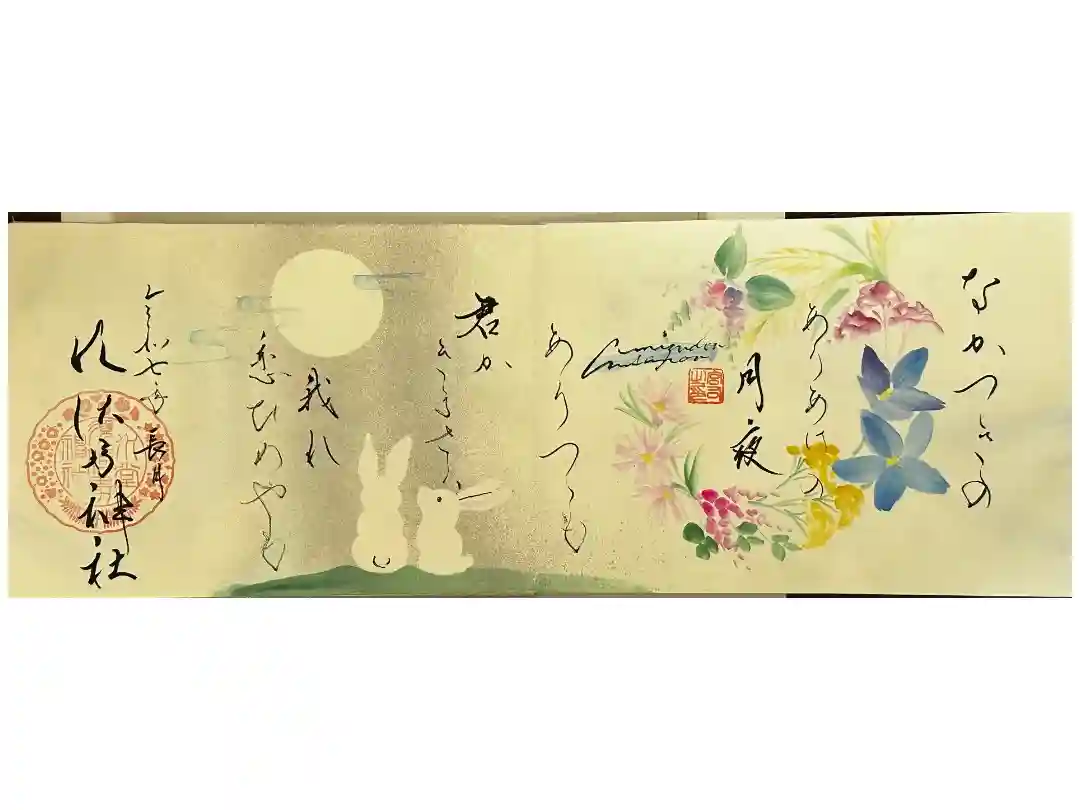 なかつきの
ありあけの
月夜
宮司之印
ありつゝも
君か
きまさは
我れ
恋ひめやも
令和七年
長月
神社